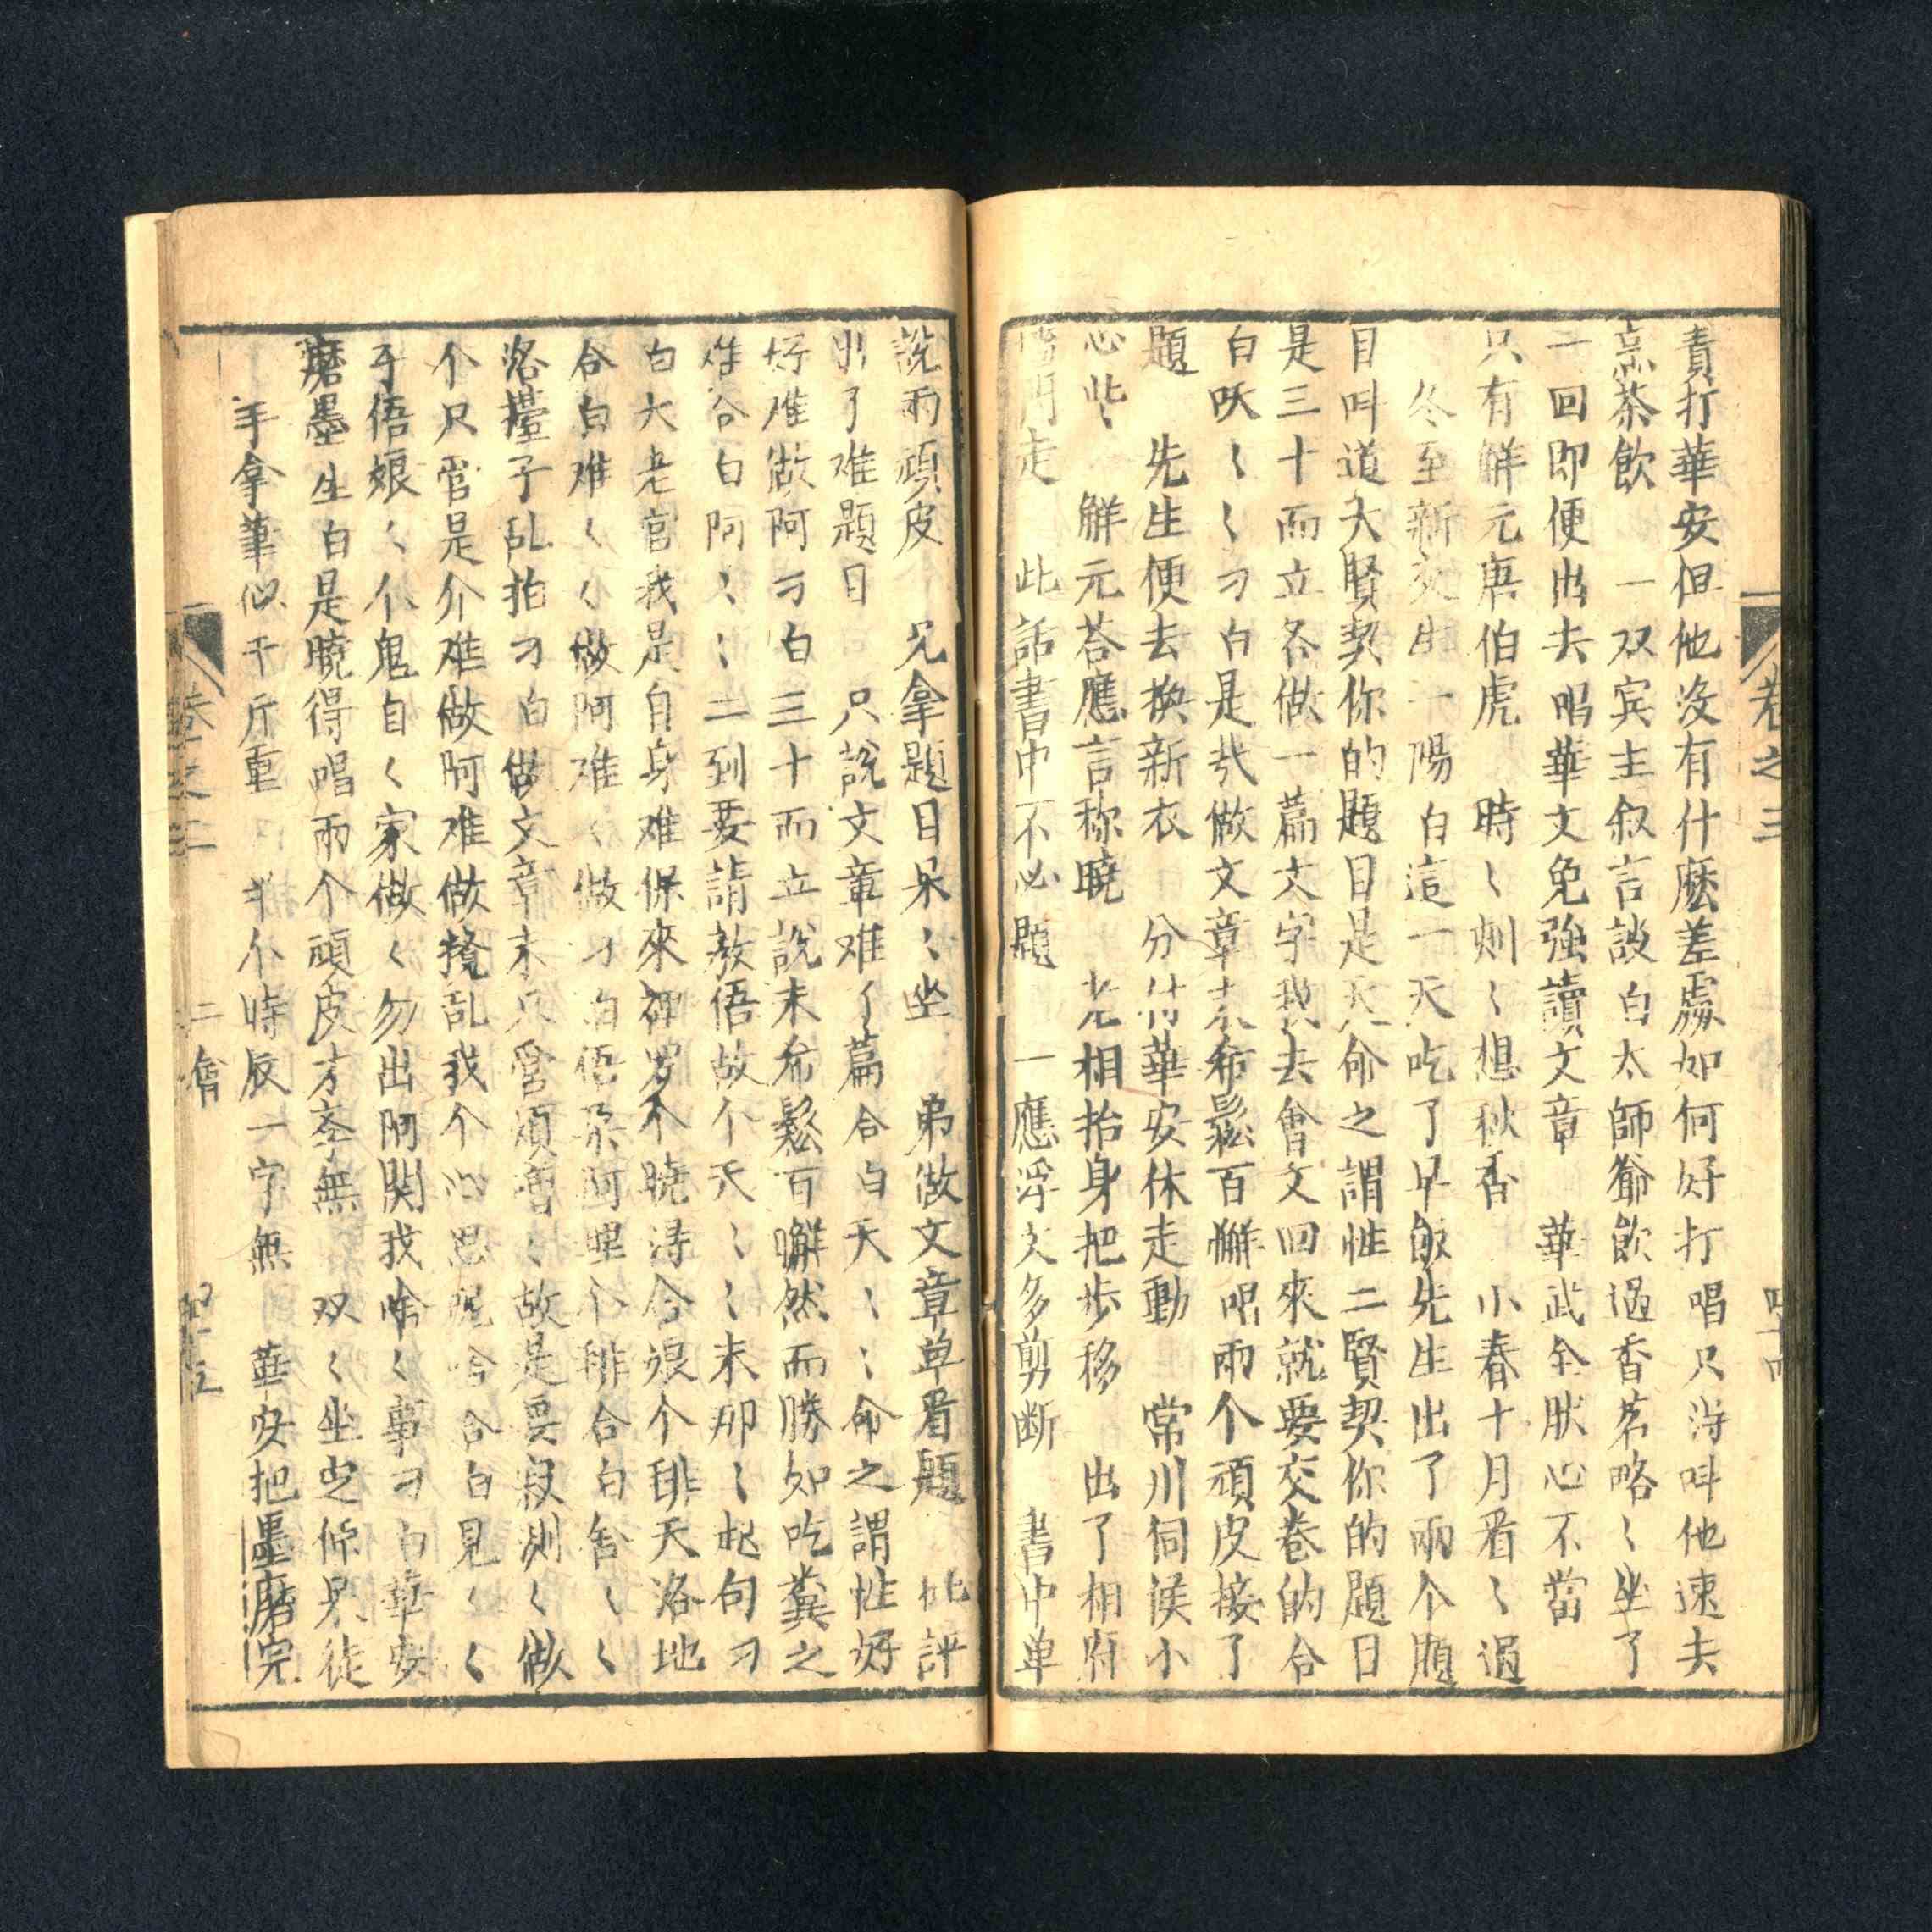 責打華安但他沒有什麼差處如何好打 唱只得呌他速去
烹茶飲 一双宾主叙言談 白太師爺飲過香茗略〻坐了
一回即便出去 唱華文免強讀文章 華武全肰心不當
只有解元唐伯虎 時〻刻〻想秋香 小春十月看〻過
冬至新交生一陽 白這一天吃了早飯先生出了兩个題
目呌道大賢契你的題目是天命之謂性二賢契你的題目
是三十而立各做一篇文字我去會文回來就要交卷的合
白㕭〻〻刁白是哉做文章末希鬆百懈 唱兩个頑皮接了
題 先生便去換新衣 分付華安休走動 常川伺候小
心些 解元荅應言称曉 老相抬身把步移 出了相府
墻門走 此話書中不必題 一應浮文多剪断 書中单
說兩頑皮 兄拿題目呆〻坐 弟做文章单看題 批評
出了难題目 只說文章难〻篇 合白天〻〻命之謂性好
好难做阿 刁白三十而立說末希鬆百懈然而勝如吃糞之
难 合白阿〻〻二到要請教俉故个天〻〻末那〻起句刁
白大老官我是自身难保來裡罗不曉得合娘个排天洛地
合白难〻〻做阿难〻做刁白俉朶阿里个排合白舍〻〻
洛擡子乱拍刁白做文章末只管頑皮〻故是要寂測〻做
个只管是介难做阿难做攪乱我个心思 合白見〻〻
乎俉娘〻个鬼自〻家做〻勿出阿関我啥〻事刁白華安
磨墨生白是曉得唱兩个頑皮才李無 双〻坐定伱只徒
手拿筆似千斤重 半个時辰一字無 華安把墨磨完
卷之三
卷之三
二會